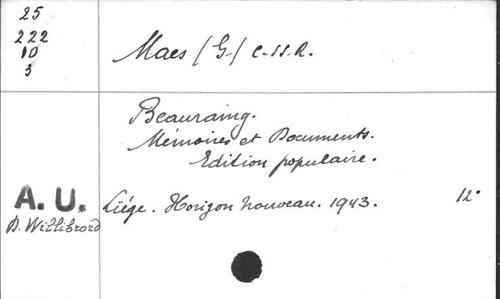 25
222
10
3
Maes (G.) C.SS.R.
Beauraing.
Mémoires et Documents.
Edition populaire.
A. U.
D. Willibrord
Liége. Horizon nouveau. 1943. 12°